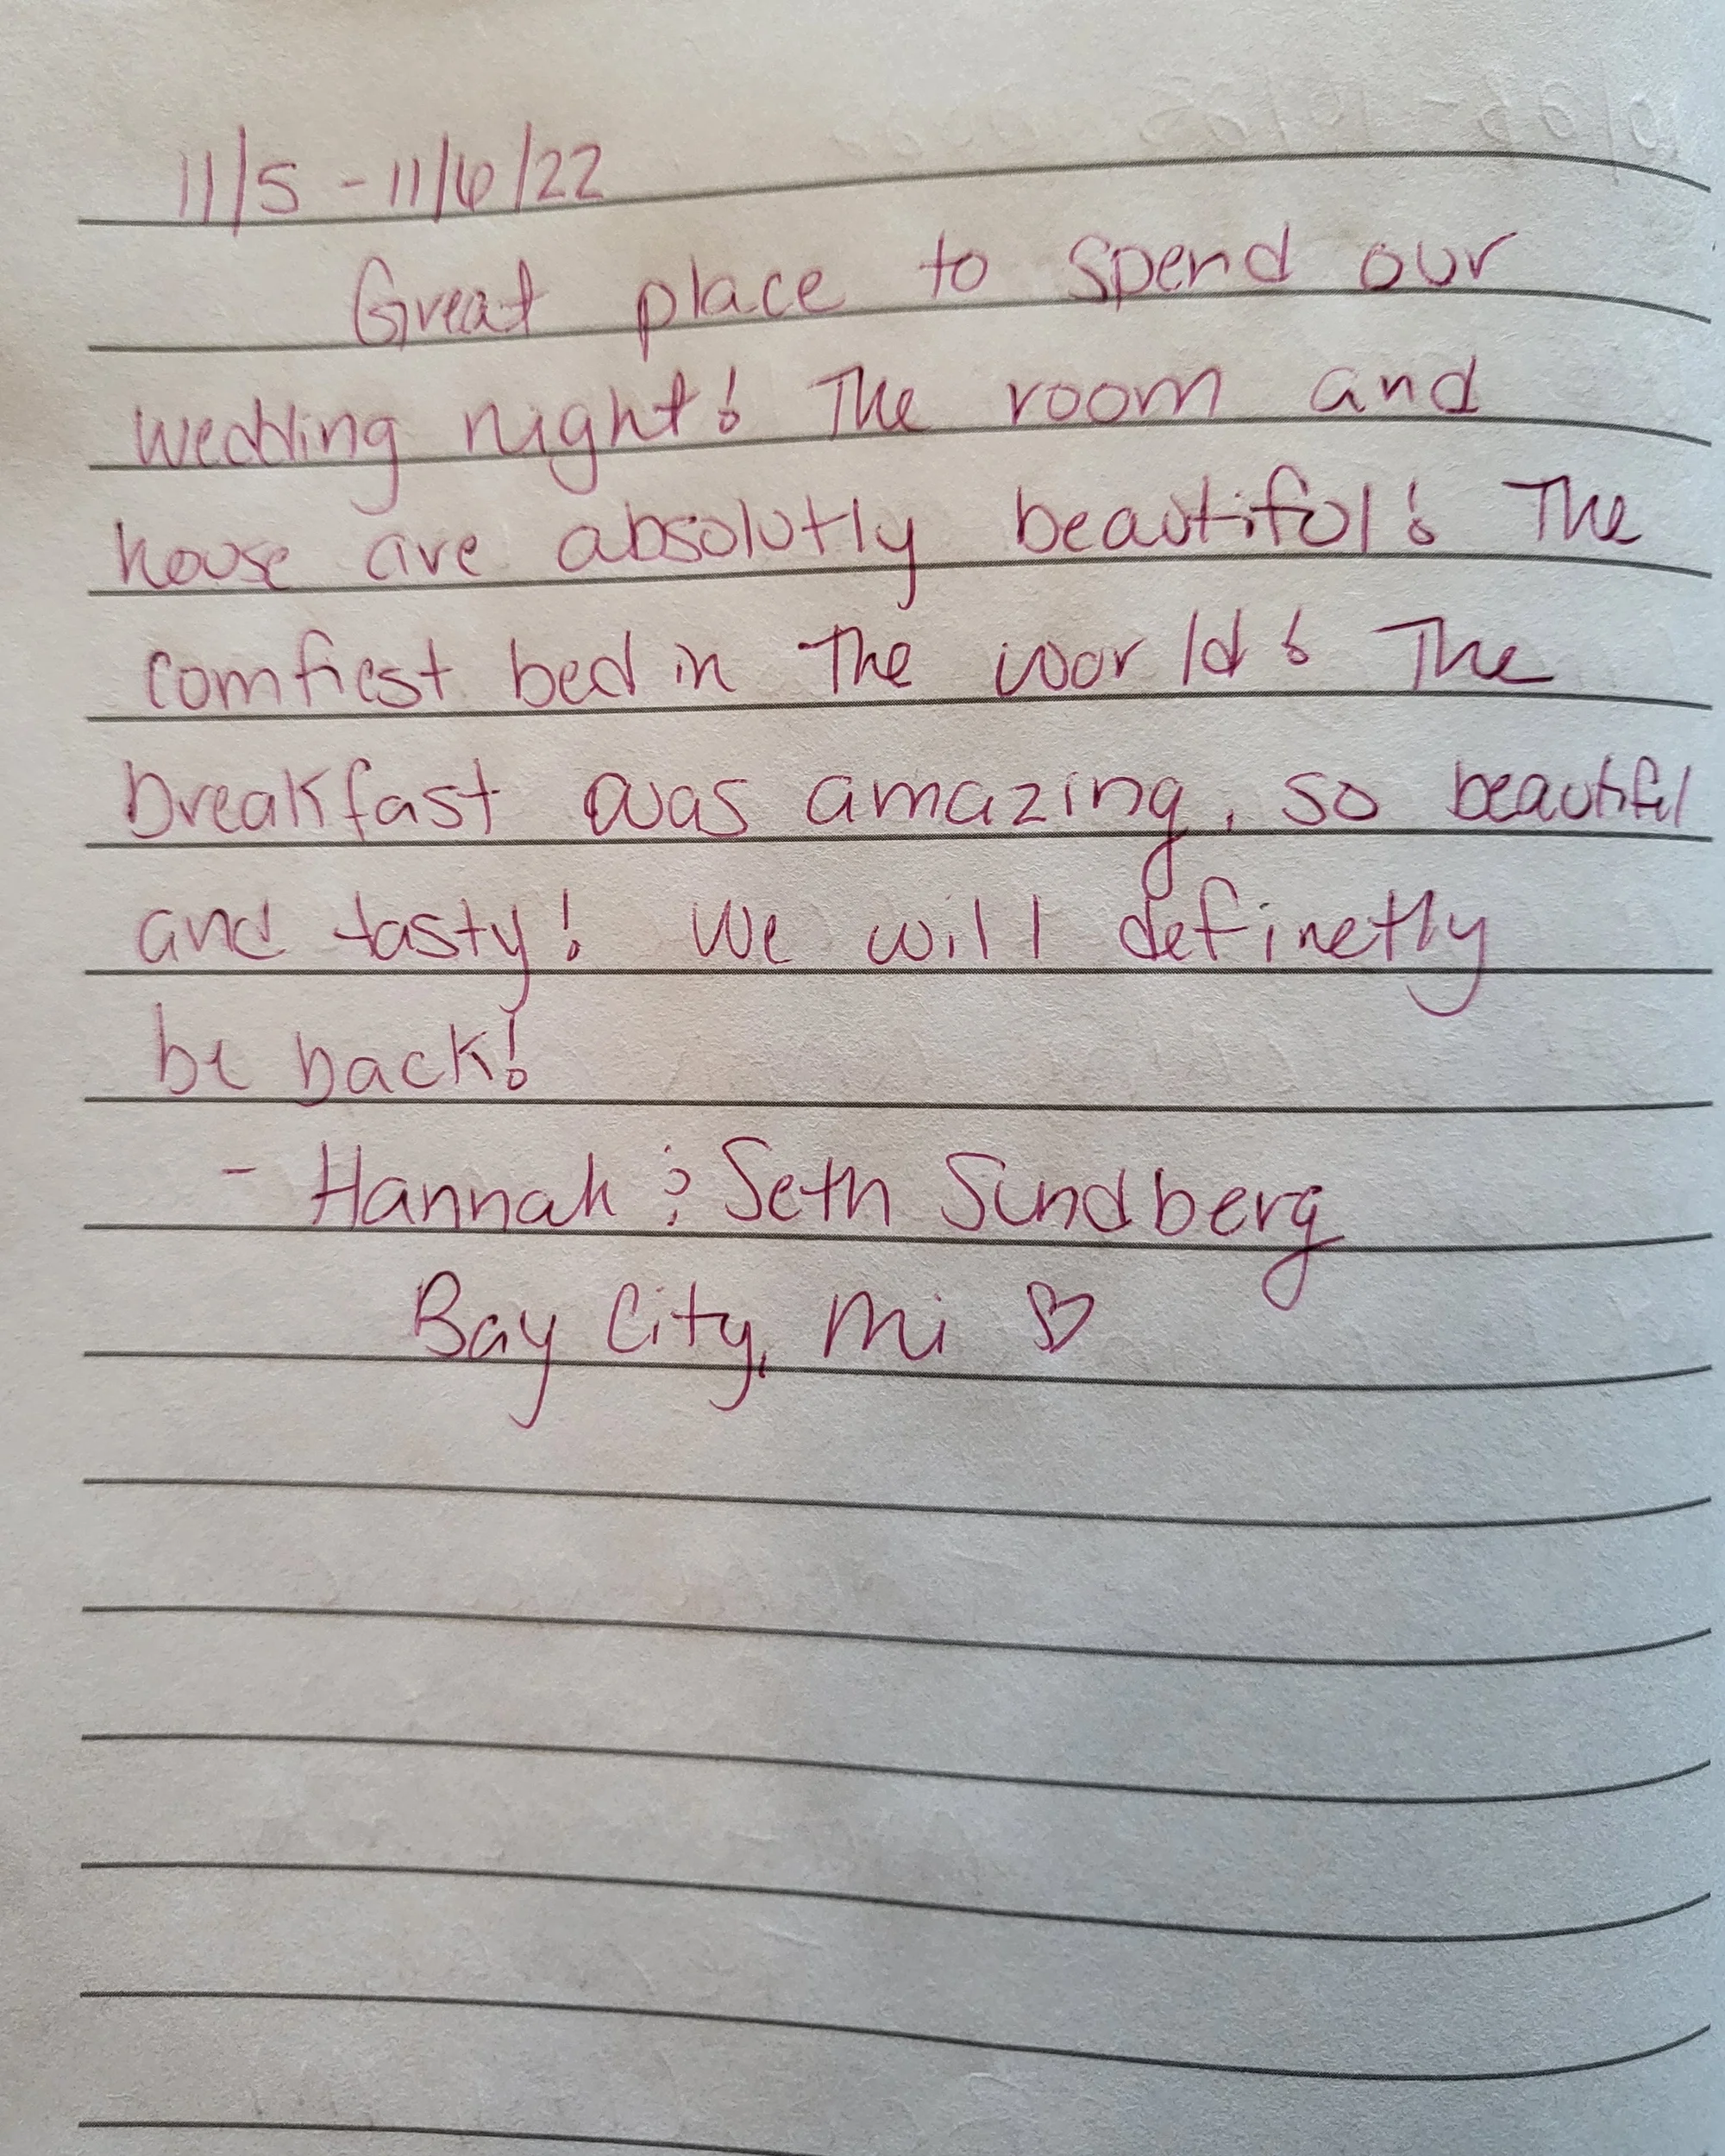 11/5 - 11/6/22
Great place to spend our
wedding night! The room and
house are absolutly beautiful! The
comfiest bed in the world! The
breakfast was amazing, so beautiful
and tasty! We will definetly
be back!
- Hannah & Seth Sundberg
Bay City, Mi ♡